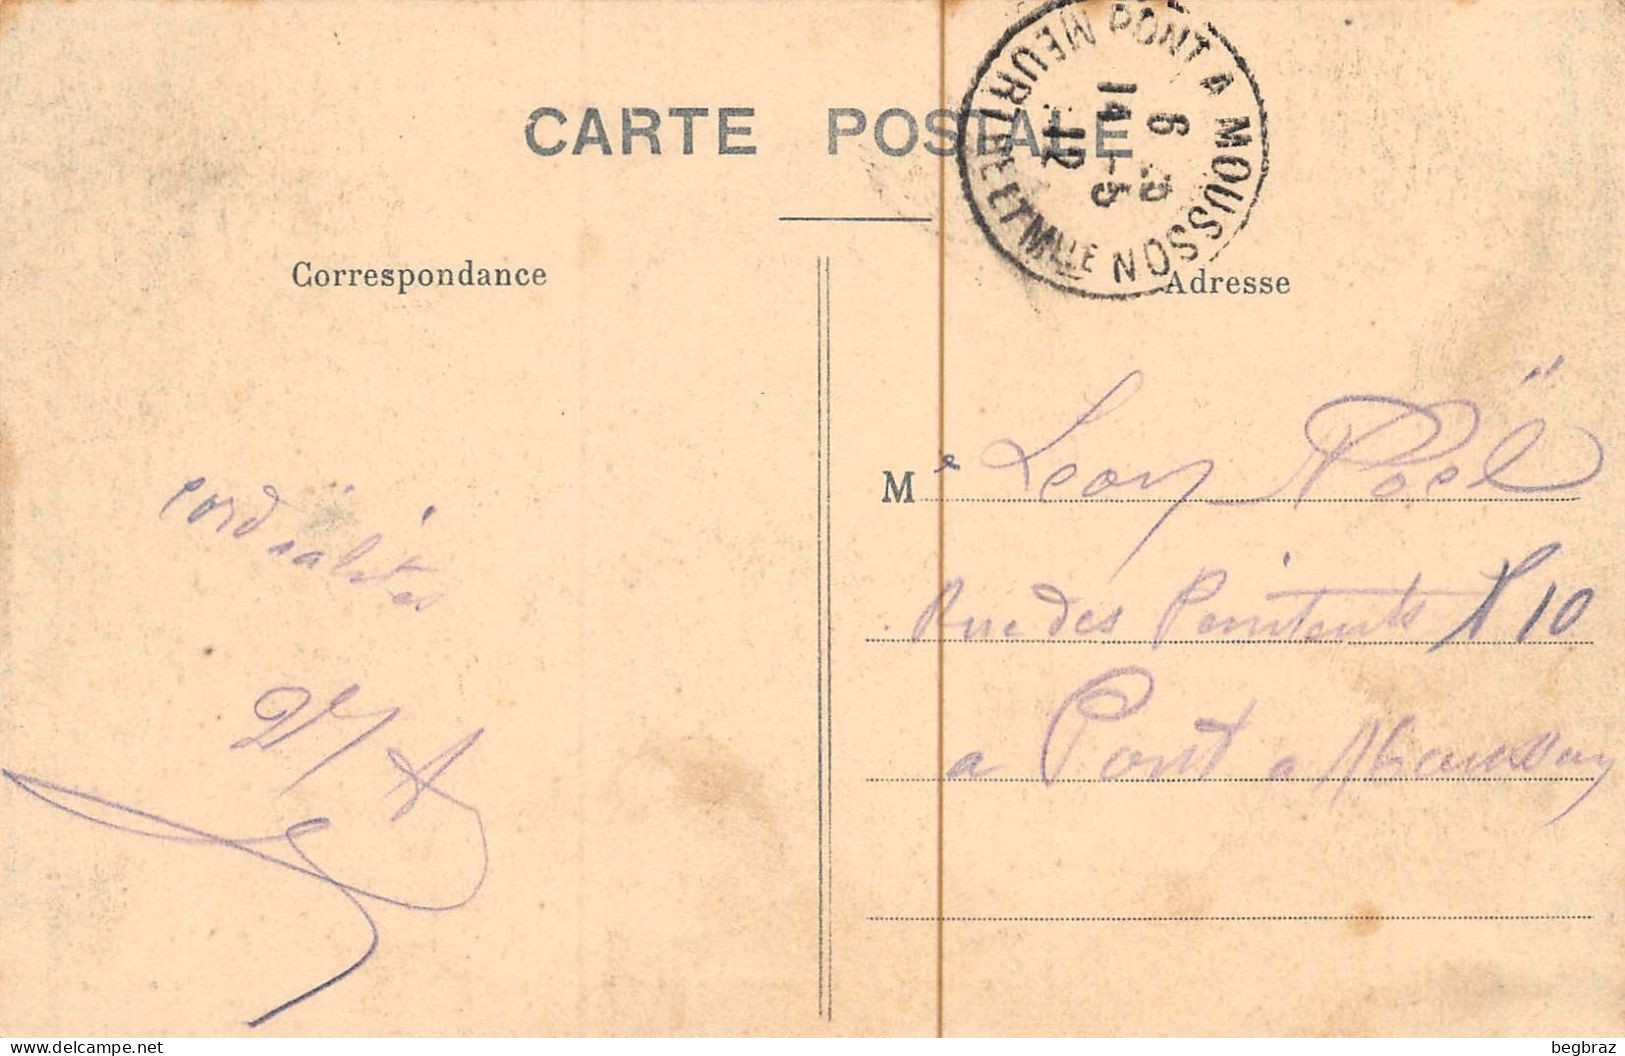 CARTE POSTALE
PONT A MOUSSON
MEURTHE ET MLLE
14-5
6 -5
12
Correspondance
Adresse
cordialités
Me Leon Noël
Rue des Penitents N 10
a Pont a Mousson
begbraz